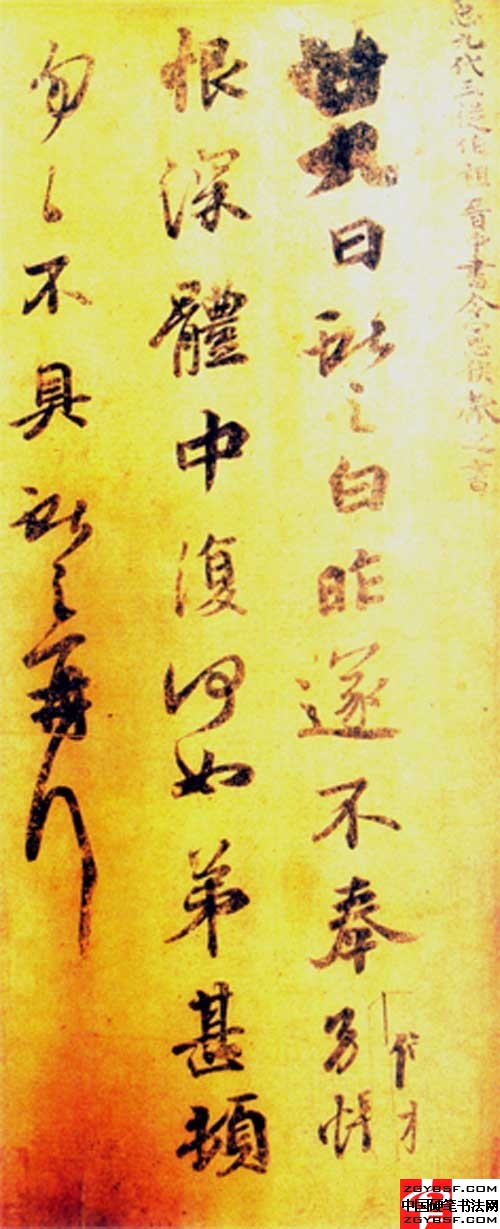 臣九代三從伯祖晉中書令憲侯獻之書
廿九日獻之白昨遂不奉別悵
恨深體中復何如弟甚頓
匆匆不具獻之再拜
ZGYBSF.COM
中国硬笔书法网
ZGYBSF.COM